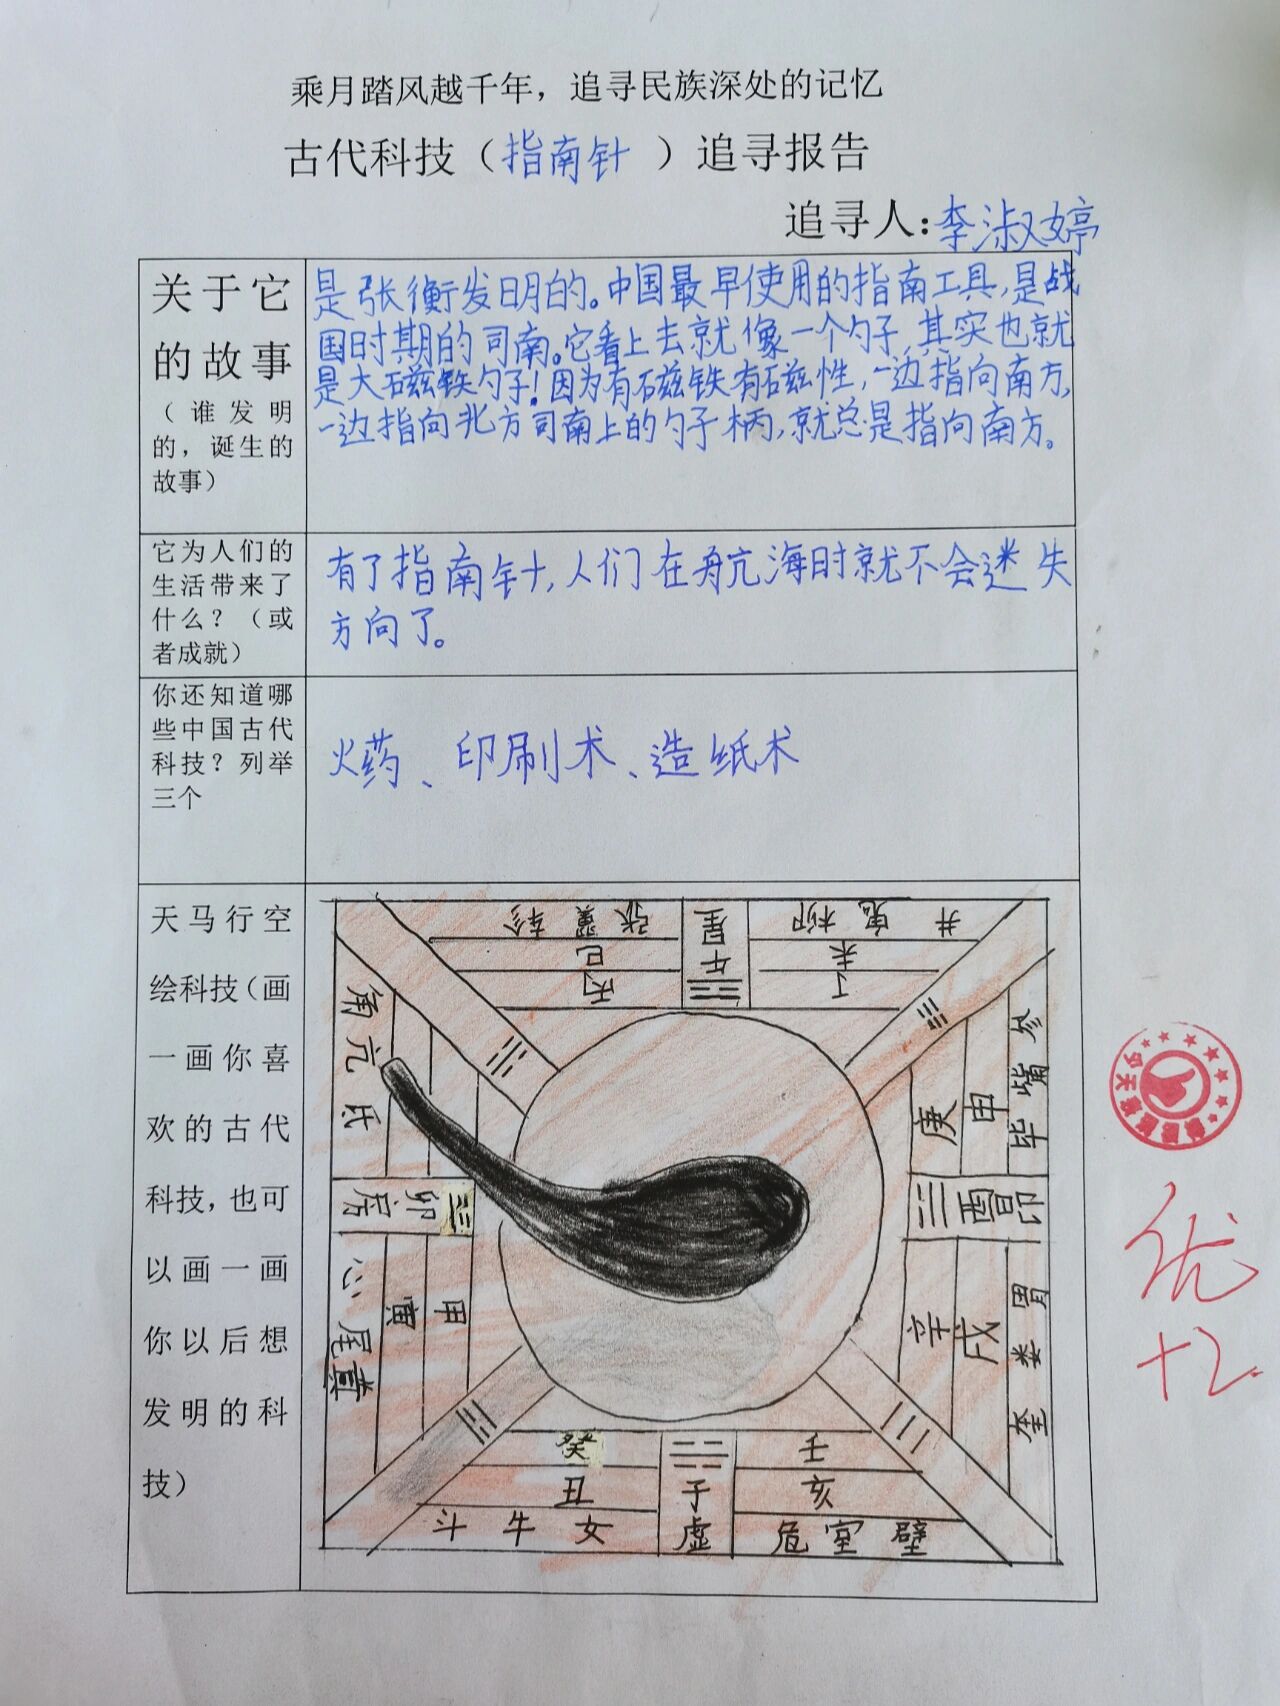 乘月踏风越千年，追寻民族深处的记忆
古代科技（指南针）追寻报告
追寻人：李淑婷
关于它
的故事
（谁发明
的，诞生的
故事）
是张衡发明的。中国最早使用的指南工具，是战
国时期的司南。它看上去就像一个勺子，其实也就
是大磁铁勺子！因为有磁铁有磁性，一边指向南方，
一边指向北方司南上的勺子柄，就总是指向南方。
它为人们的
生活带来了
什么？（或
者成就）
有了指南针，人们在航海时就不会迷失
方向了。
你还知道哪
些中国古代
科技？列举
三个
火药、印刷术、造纸术
天马行空
绘科技（画
一画你喜
欢的古代
科技，也可
以画一画
你以后想
发明的科
技）
轸翼张
巳
丙
星
午
井鬼柳
未
丁
角亢氐
卯
房
心尾
寅
甲
参觜毕
申
庚
酉
昴
胃娄奎
戌
辛
癸
丑
斗牛女
子
虚
壬
亥
危室壁
优
+2